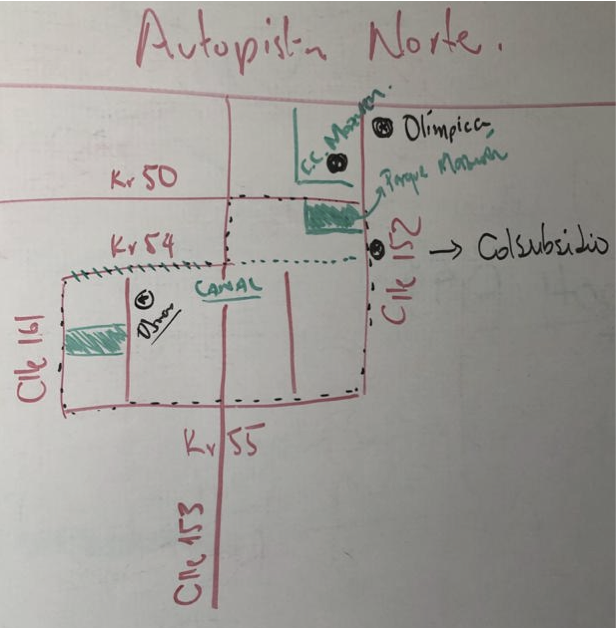 Autopista Norte.
C.C. Mazuren.
Olímpica
Parque Mazurén
Kr 50
Kr 54
Clle 152
→ Colsubsidio
CANAL
Clle 161
Kr 55
Clle 153